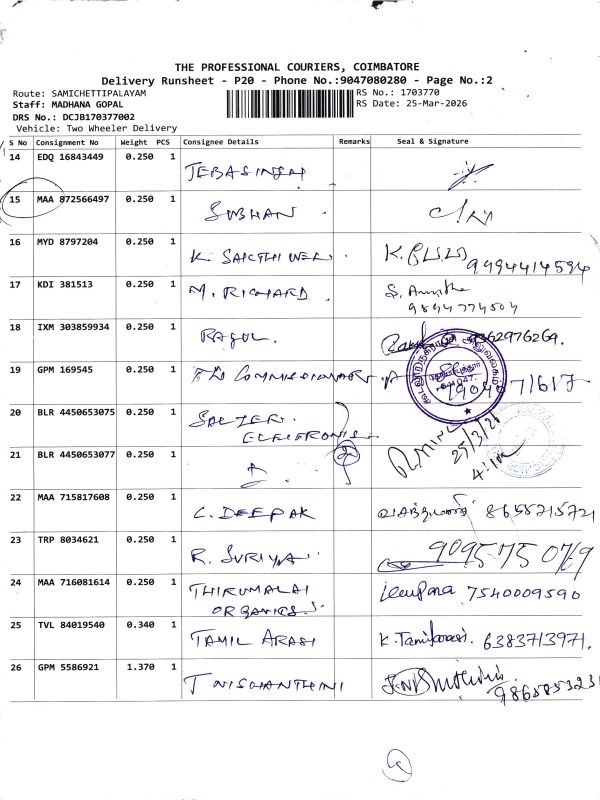 THE PROFESSIONAL COURIERS, COIMBATORE
Delivery Runsheet - P20 - Phone No.:9047080280 - Page No.:2
Route: SAMICHETTIPALAYAM RS No.: 1703770
Staff: MADHANA GOPAL RS Date: 25-Mar-2026
DRS No.: DCJB170377002
Vehicle: Two Wheeler Delivery
S No Consignment No Weight PCS Consignee Details Remarks Seal & Signature
14 EDQ 16843449 0.250 1
JEBASINGH
15 MAA 872566497 0.250 1
SUBHAN
16 MYD 8797204 0.250 1
K. SAKTHIVEL. 9994414594
17 KDI 381513 0.250 1
M. RICHARD. S. Amutha
9894774504
18 IXM 303859934 0.250 1
RAGUL.
19 GPM 169545 0.250 1
COMMISSIONAR
20 BLR 4450653075 0.250 1
SALZER.
ELECTRONIS 25/3/26
21 BLR 4450653077 0.250 1
22 MAA 715817608 0.250 1
C. DEEPAK 8655715721
23 TRP 8034621 0.250 1
R. SURIYA.
24 MAA 716081614 0.250 1
THIRUMALAI 7540009590
ORGANICS.
25 TVL 84019540 0.340 1
TAMIL ARASI K. Tamilarasi. 6383713971.
26 GPM 5586921 1.370 1
T NISHANTHINI